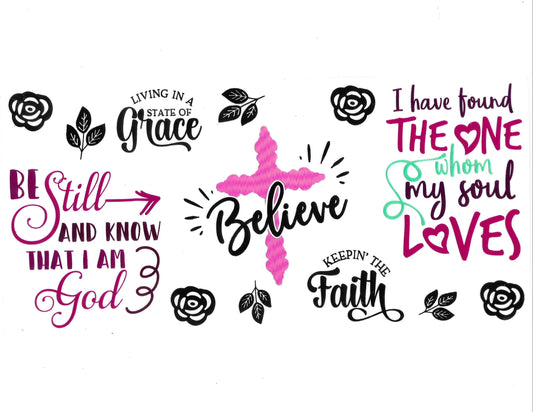 LIVING IN A
STATE OF
Grace
BE
Still
AND KNOW
THAT I AM
God
Believe
KEEPIN' THE
Faith
I have found
THE ONE
whom
my soul
LOVES